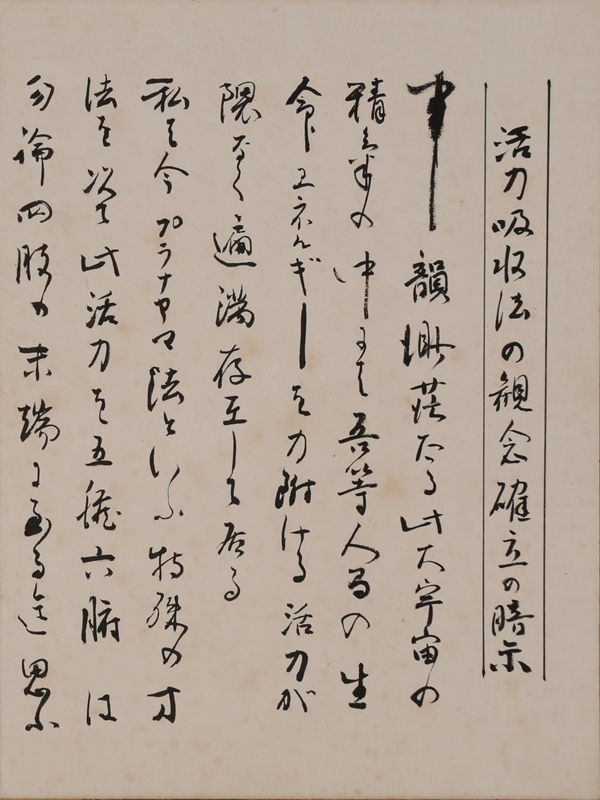 活力吸收法の観念確立の暗示
中 韻渺茫たる此大宇宙の
精気の中には吾等人間の生
命にエネルギーを力附ける活力が
隈なく遍満存在して居る
私は今プラナヤマ法といふ特殊の方
法を以て此活力を五臓六腑は
勿論四肢の末端に至る迄思ふ